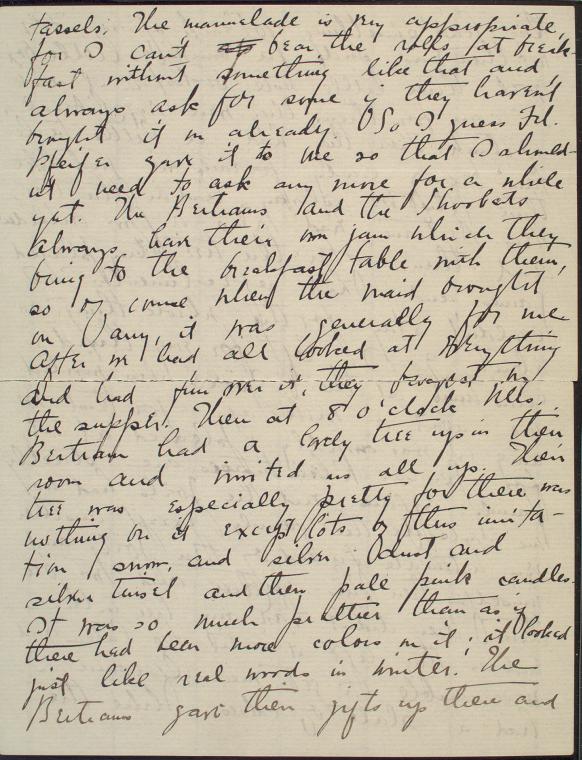 tassels. The marmelade is very appropriate,
for I can't bear the rolls at break-
fast without something like that and
always ask for some if they haven't
brought it in already. So I guess Frl.
Pfeifer gave it to me so that I should-
n't need to ask any more for a while
yet. The Bertrams and the
always have their own jam which they
bring to the breakfast table with them,
so of course when the maid brought
in any, it was generally for me.
After we had all looked at everything
and had fun over it, they brought in
the supper. Then at 8 o'clock Mrs.
Bertram had a lovely tree up in their
room and invited us all up. Their
tree was especially pretty for there was
nothing on it except lots of this imita-
tion snow, and silver dust and
silver tinsel and then pale pink candles.
It was so much prettier than as if
there had been more colors on it, it looked
just like real woods in winter. The
Bertrams gave their gifts up there and